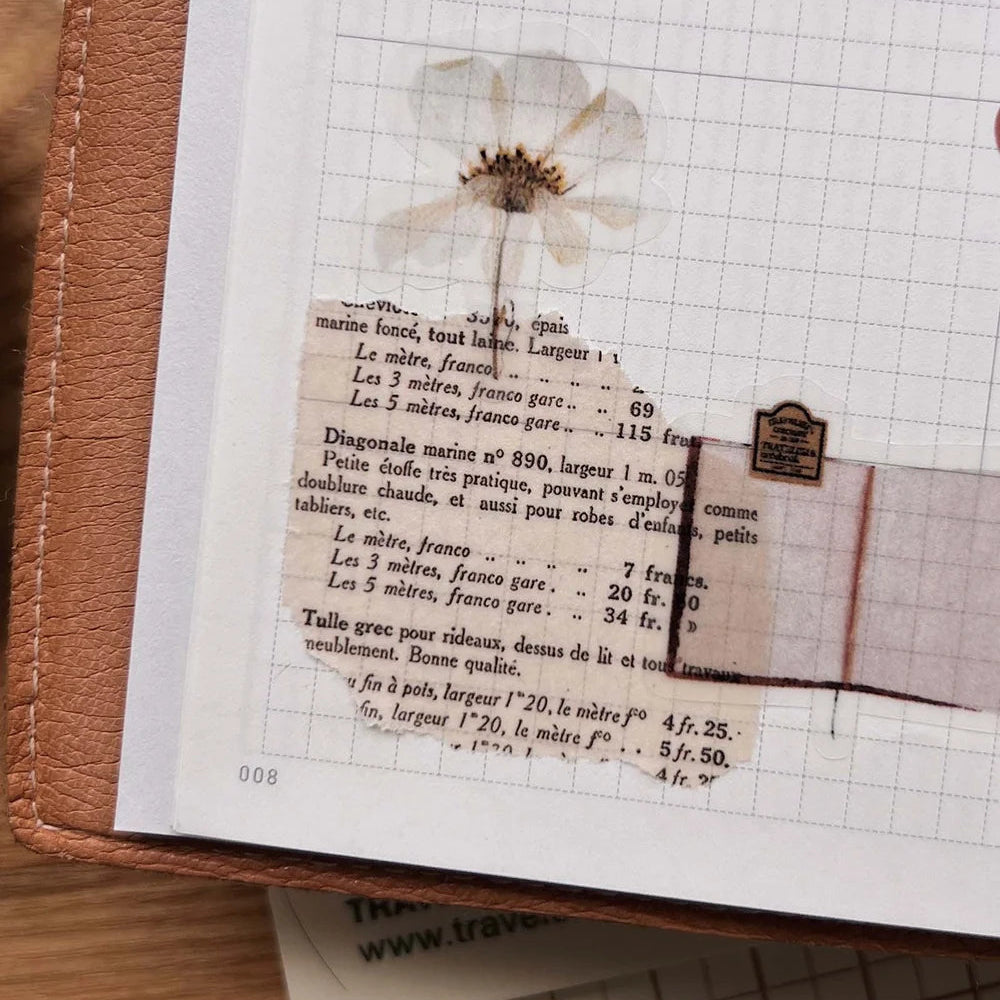 épais
marine foncé, tout laine. Largeur 1
Le mètre, franco. .. .. .. ..
Les 3 mètres, franco gare .. .. 69
Les 5 mètres, franco gare .. .. 115
Diagonale marine nº 890, largeur 1 m. 05
Petite étoffe très pratique, pouvant s'employer comme
doublure chaude, et aussi pour robes d'enfants, petits
tabliers, etc.
Le mètre, franco .. .. .. .. 7 francs.
Les 3 mètres, franco gare . .. 20 fr. 50
Les 5 mètres, franco gare . .. 34 fr. »
Tulle grec pour rideaux, dessus de lit et tous travaux
meublement. Bonne qualité.
fin à pois, largeur 1ᵐ20, le mètre fᶜᵒ 4 fr. 25.
fin, largeur 1ᵐ20, le mètre fᶜᵒ . . 5 fr. 50.
TRAVELER'S
COMPANY
TRAVELER'S
notebook
008
www.trave